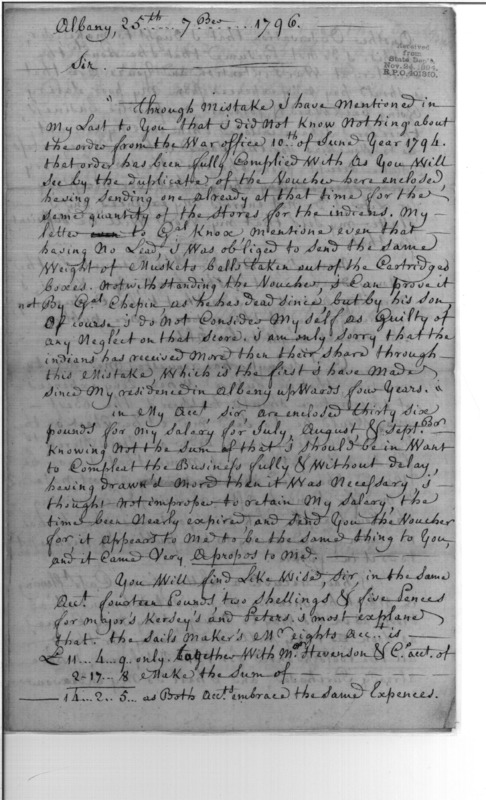 Albany, 25th 7ber 1796.
Received
from
State Dep't
Nov. 24, 1894.
R.P.O. 401910.
Sir
Through Mistake i have Mentioned in
My Last to You that i did Not Know Nothing about
the order from the War office 10th of June Year 1794.
that order has been fully Complied With as You Will
see by the duplicate of the Voucher here enclosed,
having sending one already at that time for the
same quantity of the Stores for the indians. My
letter to Gal Knox mentione even that
having No Lead, i Was obliged to send the same
Weight of Muskets balls taken out of the Cartridges
boxes. Notwithstanding the Voucher, i Can prove it
not By Gal Chepin, as he has dead since but by his son,
of Course i do Not Consider My self as Guilty of
any Neglect on that Score. i am only sorry that the
indians has received More then their share through
this Mistake Which is the first i have Made
since My residence in Albany upWards four Years."
in My Acct sir are enclosed thirty six
pounds for My salary for July, August & Septber
Knowing Not the sum of that i should be in Want
to Compleat the Business fully & Without delay,
having drawn'd More then it Was Necessary i
thought Not improper to retain My salary, the
time been Nearly expired, and send You the Voucher
for it appears to Me to be the same thing to You,
and it Came Very Apropos to Me.
You Will find Like Wise, Sir, in the same
Acct. fourteen Pounds two shellings & five Pences
for Major's Kersey's and Peters. i most explane
that the Sails Maker's Mc eights Acc.t is
£ 11..4..9. only. together With Mrs Stevenson & Co. acct. of
2-17..8 Make the Sum of
14..2..5.. as Both Accts embrace the same Expences.